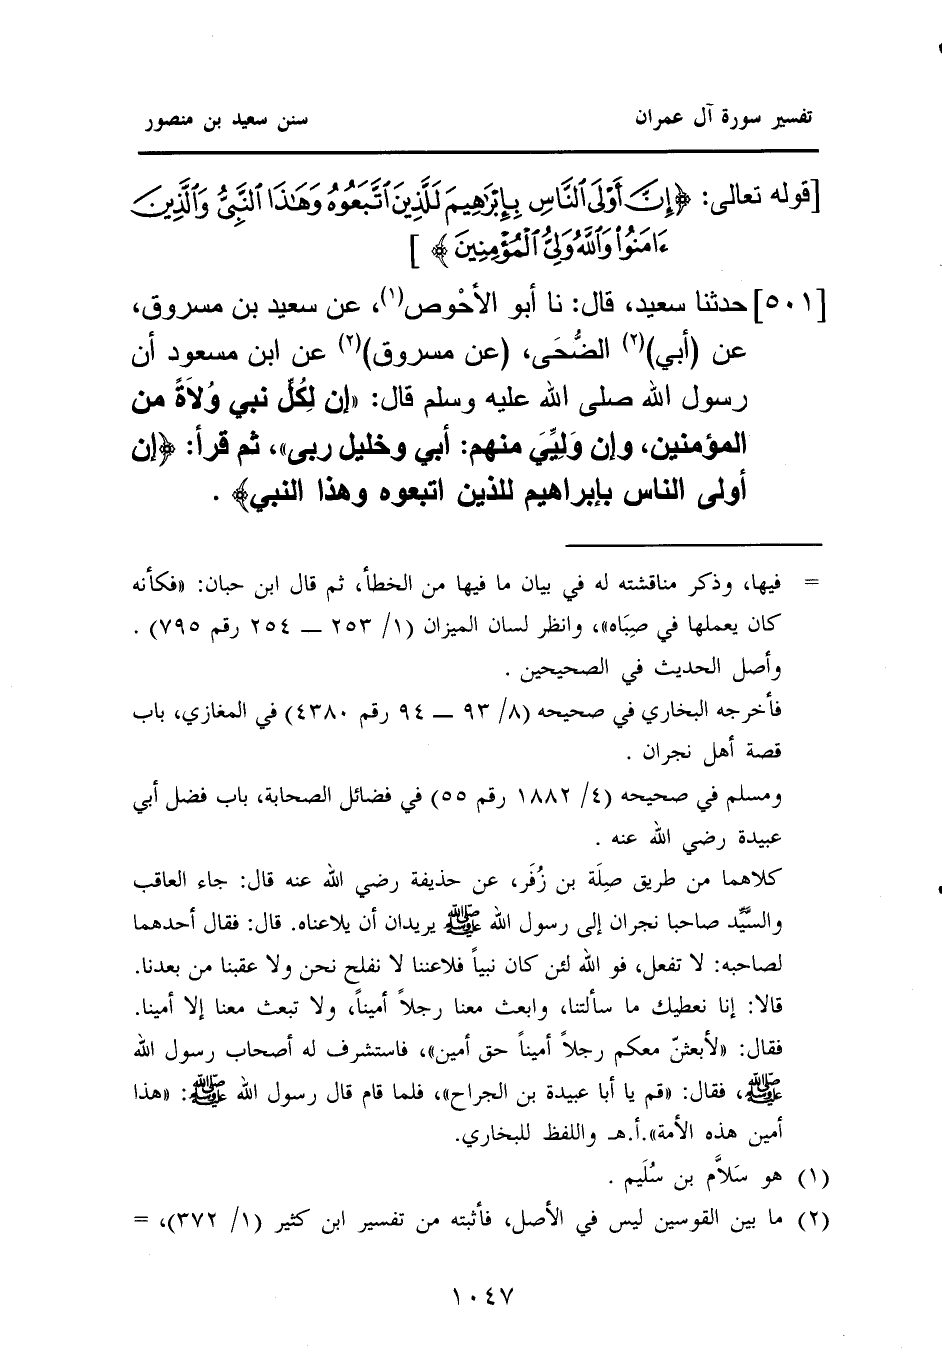 تفسير سورة آل عمران
سنن سعيد بن منصور
[قوله تعالى: ﴿إِنَّ أَوْلَى ٱلنَّاسِ بِإِبْرَٰهِيمَ لَلَّذِينَ ٱتَّبَعُوهُ وَهَٰذَا ٱلنَّبِىُّ وَٱلَّذِينَ
ءَامَنُواْ وَٱللَّهُ وَلِىُّ ٱلْمُؤْمِنِينَ﴾ ]
[٥٠١] حدثنا سعيد، قال: نا أبو الأحْوص(١)، عن سعيد بن مسروق،
عن (أبي)(٢) الضُّحَى، (عن مسروق)(٢) عن ابن مسعود أن
رسول الله صلى الله عليه وسلم قال: «إن لكُلِّ نبي وُلاَةً من
المؤمنين، وإن وَلِيِّيَ منهم: أبي وخليل ربى»، ثم قرأ: ﴿إن
أولى الناس بإبراهيم للذين اتبعوه وهذا النبي﴾ .
= فيها، وذكر مناقشته له في بيان ما فيها من الخطأ، ثم قال ابن حبان: «فكأنه
كان يعملها في صِبَاه»، وانظر لسان الميزان (١/ ٢٥٣ ــ ٢٥٤ رقم ٧٩٥) .
وأصل الحديث في الصحيحين .
فأخرجه البخاري في صحيحه (٨/ ٩٣ ــ ٩٤ رقم ٤٣٨٠) في المغازي، باب
قصة أهل نجران .
ومسلم في صحيحه (٤/ ١٨٨٢ رقم ٥٥) في فضائل الصحابة، باب فضل أبي
عبيدة رضي الله عنه .
كلاهما من طريق صِلَة بن زُفَر، عن حذيفة رضي الله عنه قال: جاء العاقب
والسيِّد صاحبا نجران إلى رسول الله ﷺ يريدان أن يلاعناه. قال: فقال أحدهما
لصاحبه: لا تفعل، فو الله لئن كان نبياً فلاعننا لا نفلح نحن ولا عقبنا من بعدنا.
قالا: إنا نعطيك ما سألتنا، وابعث معنا رجلاً أميناً، ولا تبعث معنا إلا أمينا.
فقال: «لأبعثنّ معكم رجلاً أميناً حق أمين»، فاستشرف له أصحاب رسول الله
ﷺ، فقال: «قم يا أبا عبيدة بن الجراح»، فلما قام قال رسول الله ﷺ: «هذا
أمين هذه الأمة».أ.هـ واللفظ للبخاري.
(١) هو سَلاَّم بن سُلَيم .
(٢) ما بين القوسين ليس في الأصل، فأثبته من تفسير ابن كثير (١/ ٣٧٢)، =
١٠٤٧